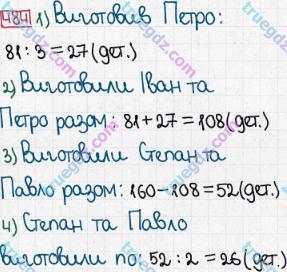 484 1) Виготовив Петро:
81 : 3 = 27 (дет.)
2) Виготовили Іван та
Петро разом: 81 + 27 = 108 (дет.)
3) Виготовили Степан та
Павло разом: 160 - 108 = 52 (дет.)
4) Степан та Павло
виготовили по: 52 : 2 = 26 (дет.)